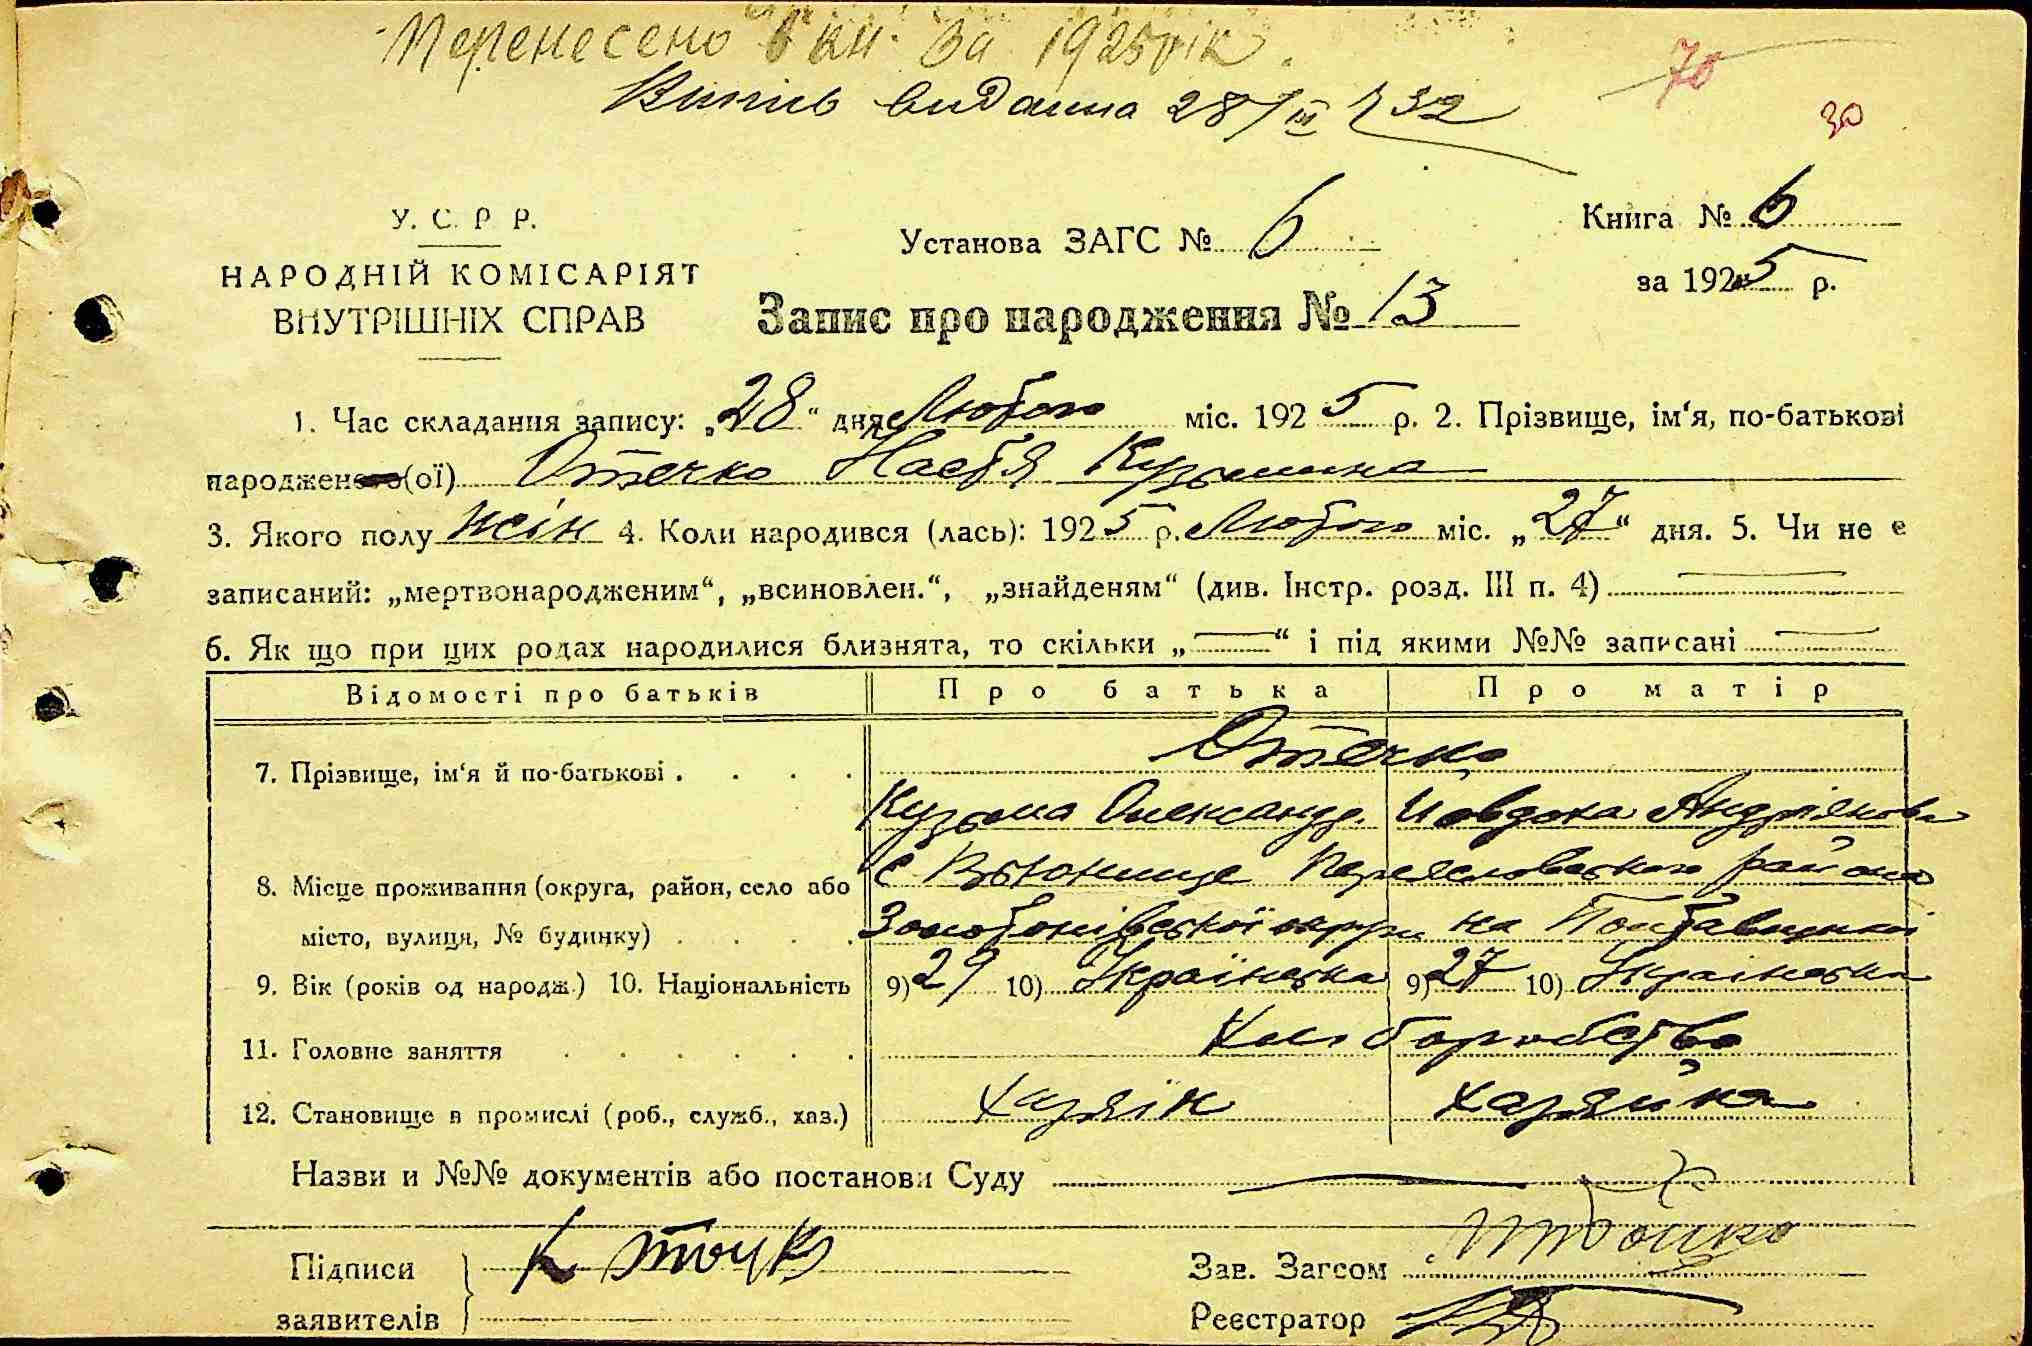 Перенесено в кн. за 1925 рік.
Витпіс виданна 28/III 32
70
30
У. С. Р. Р.
НАРОДНІЙ КОМІСАРІЯТ
ВНУТРІШНІХ СПРАВ
Установа ЗАГС № 6
Книга № 6
за 1925 р.
Запис про народження № 13
1. Час складання запису: „28“ дня Лютого міс. 1925 р. 2. Прізвище, ім‘я, по-батькові
народженого(ої) Отечко Настя Кузьмина
3. Якого полу жін 4. Коли народився (лась): 1925 р. Лютого міс. „27“ дня. 5. Чи не є
записаний: „мертвонародженим“, „всиновлен.“, „знайденям“ (див. Інстр. розд. III п. 4)
6. Як що при цих родах народилися близнята, то скільки „—“ і під якими №№ записані
Відомості про батьків Про батька Про матір
7. Прізвище, ім‘я й по-батькові . . . . Отечко
Кузьма Олександр. Йовдоха Андріянова
8. Місце проживання (округа, район, село або с Вьюнище Переяславського району
місто, вулиця, № будинку) . . . . Золотонівської округи на Полтавщині
9. Вік (років од народж.) 10. Національність 9) 29 10) Українська 9) 27 10) Українська
11. Головне заняття . . . . . . Хліборобство
12. Становище в промислі (роб., служб., хаз.) Хазяїн Хазяйка
Назви и №№ документів або постанови Суду
Підписи
заявителів
К
Зав. Загсом
Реєстратор